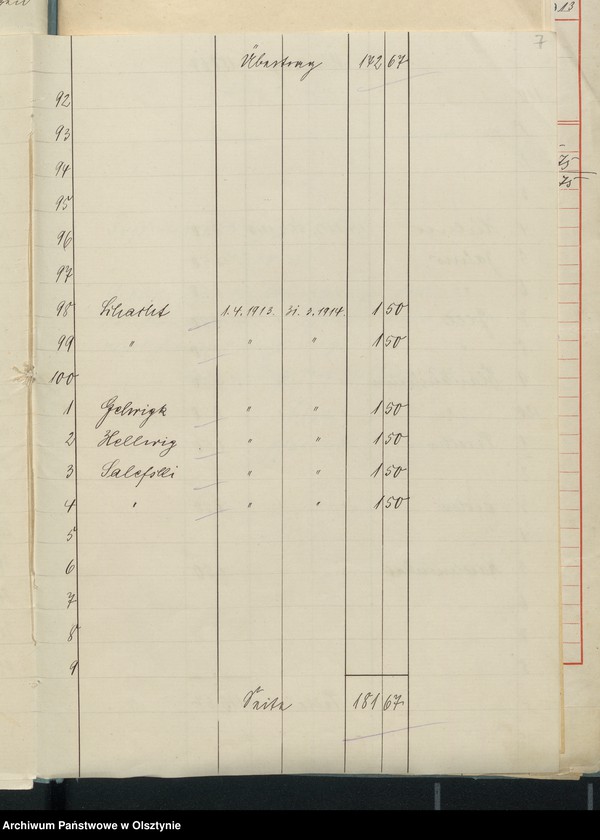 7
Übertrag 172 67
92
93
94
95
96
97
98 1.4.1913. 31.3.1914. 1 50
99 " " " 1 50
100
1 " " 1 50
2 Hellwig " " 1 50
3 " " 1 50
4 " " " 1 50
5
6
7
8
9
Seite 181 67
13
75
75
Archiwum Państwowe w Olsztynie